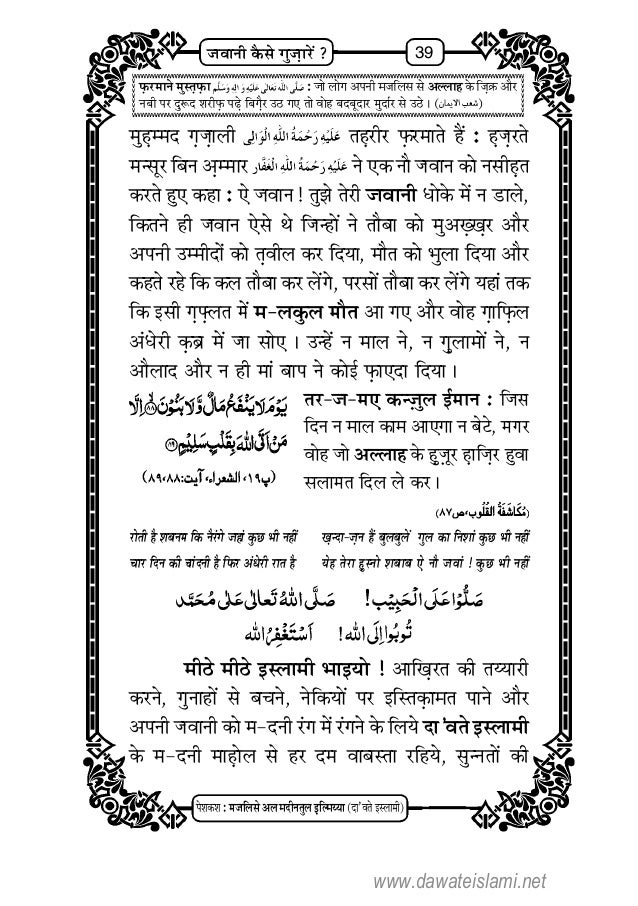 जवानी कैसे गुज़ारें ?
39
फ़रमाने मुस्त़फ़ा صَلَّى اللهُ تَعَالٰى عَلَيْهِ وَاٰلِهٖ وَسَلَّم : जो लोग अपनी मजलिस से अल्लाह के ज़िक्र और
नबी पर दुरूद शरीफ़ पढ़े बिग़ैर उठ गए तो वोह बदबूदार मुर्दार से उठे । (شعب الایمان)
मुह़म्मद ग़ज़ाली عَلَيْهِ رَحْمَةُ اللهِ الْوَالِى तह़रीर फ़रमाते हैं : ह़ज़रते
मन्सूर बिन अ़म्मार عَلَيْهِ رَحْمَةُ اللهِ الْغَفَّار ने एक नौ जवान को नसीह़त
करते हुए कहा : ऐ जवान ! तुझे तेरी जवानी धोके में न डाले,
कितने ही जवान ऐसे थे जिन्हों ने तौबा को मुअख़्ख़र और
अपनी उम्मीदों को त़वील कर दिया, मौत को भुला दिया और
कहते रहे कि कल तौबा कर लेंगे, परसों तौबा कर लेंगे यहां तक
कि इसी ग़फ़्लत में म-लकुल मौत आ गए और वोह ग़ाफ़िल
अंधेरी क़ब्र में जा सोए । उन्हें न माल ने, न ग़ुलामों ने, न
औलाद और न ही मां बाप ने कोई फ़ाएदा दिया ।
يَوْمَ لَا يَنْفَعُ مَالٌ وَّلَا بَنُوْنَ ﴿۸۸﴾ اِلَّا
مَنْ اَتَى اللهَ بِقَلْبٍ سَلِيْمٍ ﴿۸۹﴾
(پ۱۹، الشعراء، آیت:۸۸،۸۹)
तर-ज-मए कन्ज़ुल ईमान : जिस
दिन न माल काम आएगा न बेटे, मगर
वोह जो अल्लाह के हुज़ूर ह़ाज़िर हुवा
सलामत दिल ले कर ।
(مُكَاشَفَةُ الْقُلُوب، ص۸۷)
रोती है शबनम कि नैरंगे जहां कुछ भी नहीं ख़न्दा-ज़न हैं बुलबुलें गुल का निशां कुछ भी नहीं
चार दिन की चांदनी है फिर अंधेरी रात है येह तेरा ह़ुस्नो शबाब ऐ नौ जवां ! कुछ भी नहीं
صَلُّوْا عَلَى الْحَبِيْب! صَلَّى اللهُ تَعَالٰى عَلٰى مُحَمَّد
تُوبُوْا اِلَى الله! اَسْتَغْفِرُ الله
मीठे मीठे इस्लामी भाइयो ! आख़िरत की तय्यारी
करने, गुनाहों से बचने, नेकियों पर इस्तिक़ामत पाने और
अपनी जवानी को म-दनी रंग में रंगने के लिये दा'वते इस्लामी
के म-दनी माह़ोल से हर दम वाबस्ता रहिये, सुन्नतों की
पेशकश : मजलिसे अल मदीनतुल इल्मिय्या (दा'वते इस्लामी)
www.dawateislami.net